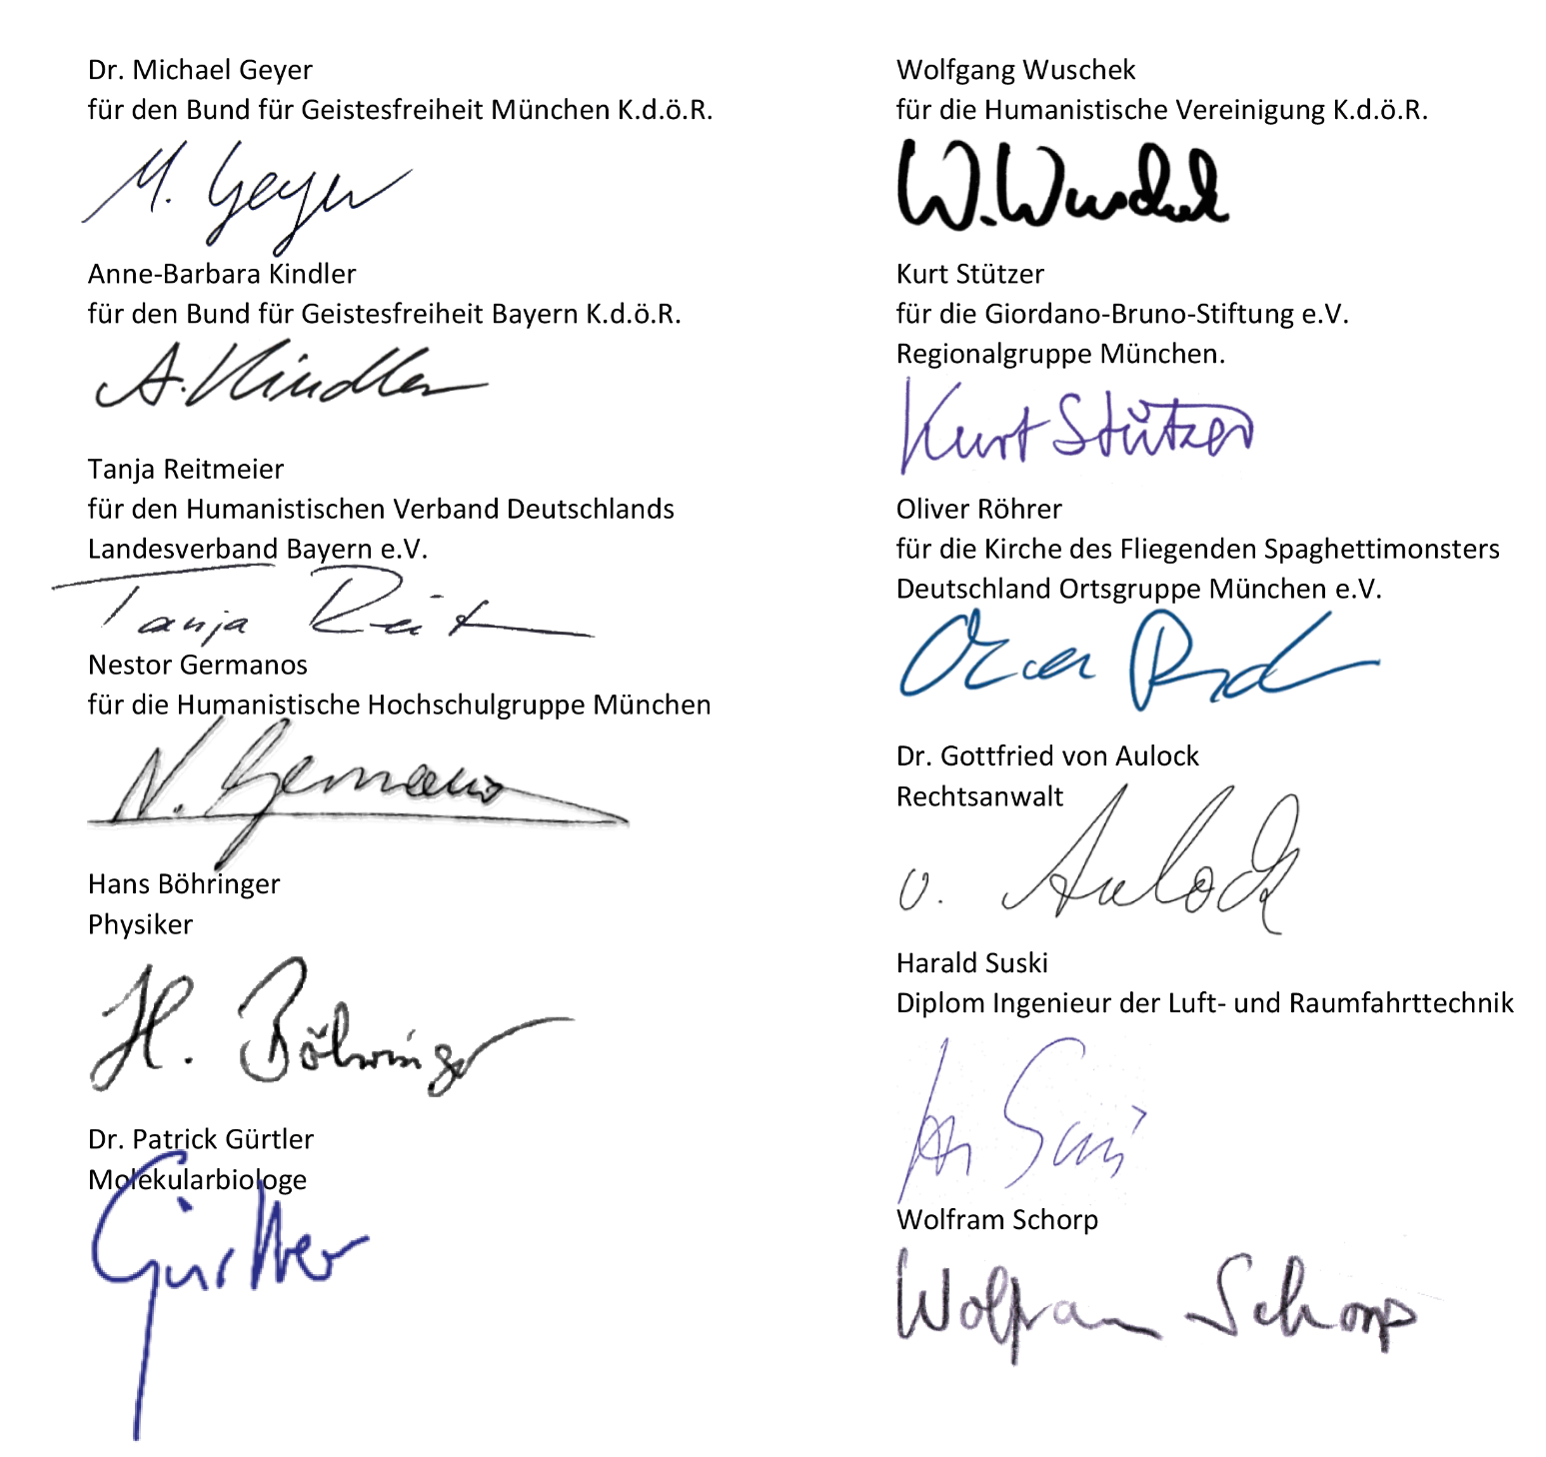 Dr. Michael Geyer
für den Bund für Geistesfreiheit München K.d.ö.R.
M. Geyer
Anne-Barbara Kindler
für den Bund für Geistesfreiheit Bayern K.d.ö.R.
A. Kindler
Tanja Reitmeier
für den Humanistischen Verband Deutschlands
Landesverband Bayern e.V.
Tanja Reit
Nestor Germanos
für die Humanistische Hochschulgruppe München
N. Germanos
Hans Böhringer
Physiker
H. Böhringer
Dr. Patrick Gürtler
Molekularbiologe
Gürtler
Wolfgang Wuschek
für die Humanistische Vereinigung K.d.ö.R.
W. Wuschek
Kurt Stützer
für die Giordano-Bruno-Stiftung e.V.
Regionalgruppe München.
Kurt Stützer
Oliver Röhrer
für die Kirche des Fliegenden Spaghettimonsters
Deutschland Ortsgruppe München e.V.
Dr. Gottfried von Aulock
Rechtsanwalt
v. Aulock
Harald Suski
Diplom Ingenieur der Luft- und Raumfahrttechnik
Wolfram Schorp
Wolfram Schorp